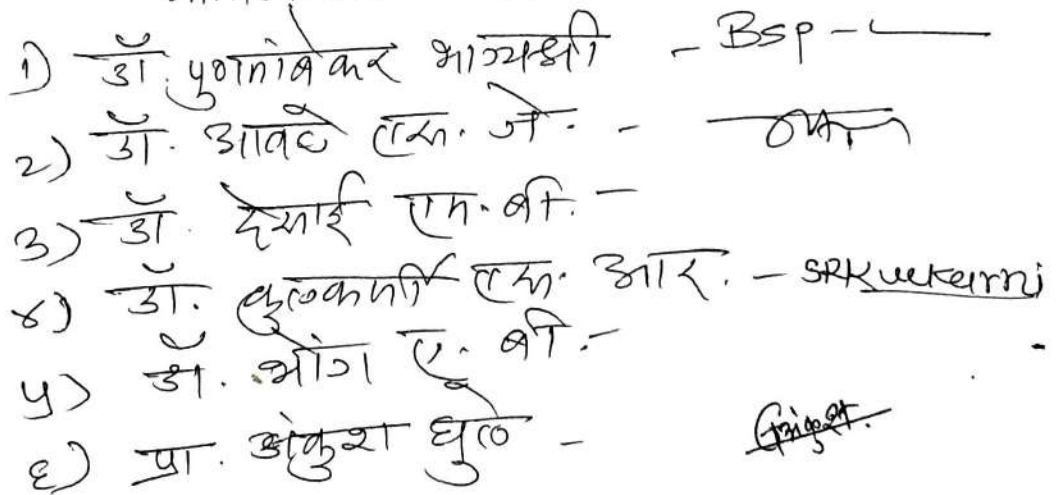 १) डॉ. पुणतांबेकर भाग्यश्री - BSP -
२) डॉ. आवटे एस. जे. -
३) डॉ. देसाई एम. बी. -
४) डॉ. कुळकर्णी एस. आर. - SRKulkarni
५) डॉ. भोंग ए. बी. -
६) प्रा. अंकुश धुळे - अंकुश.